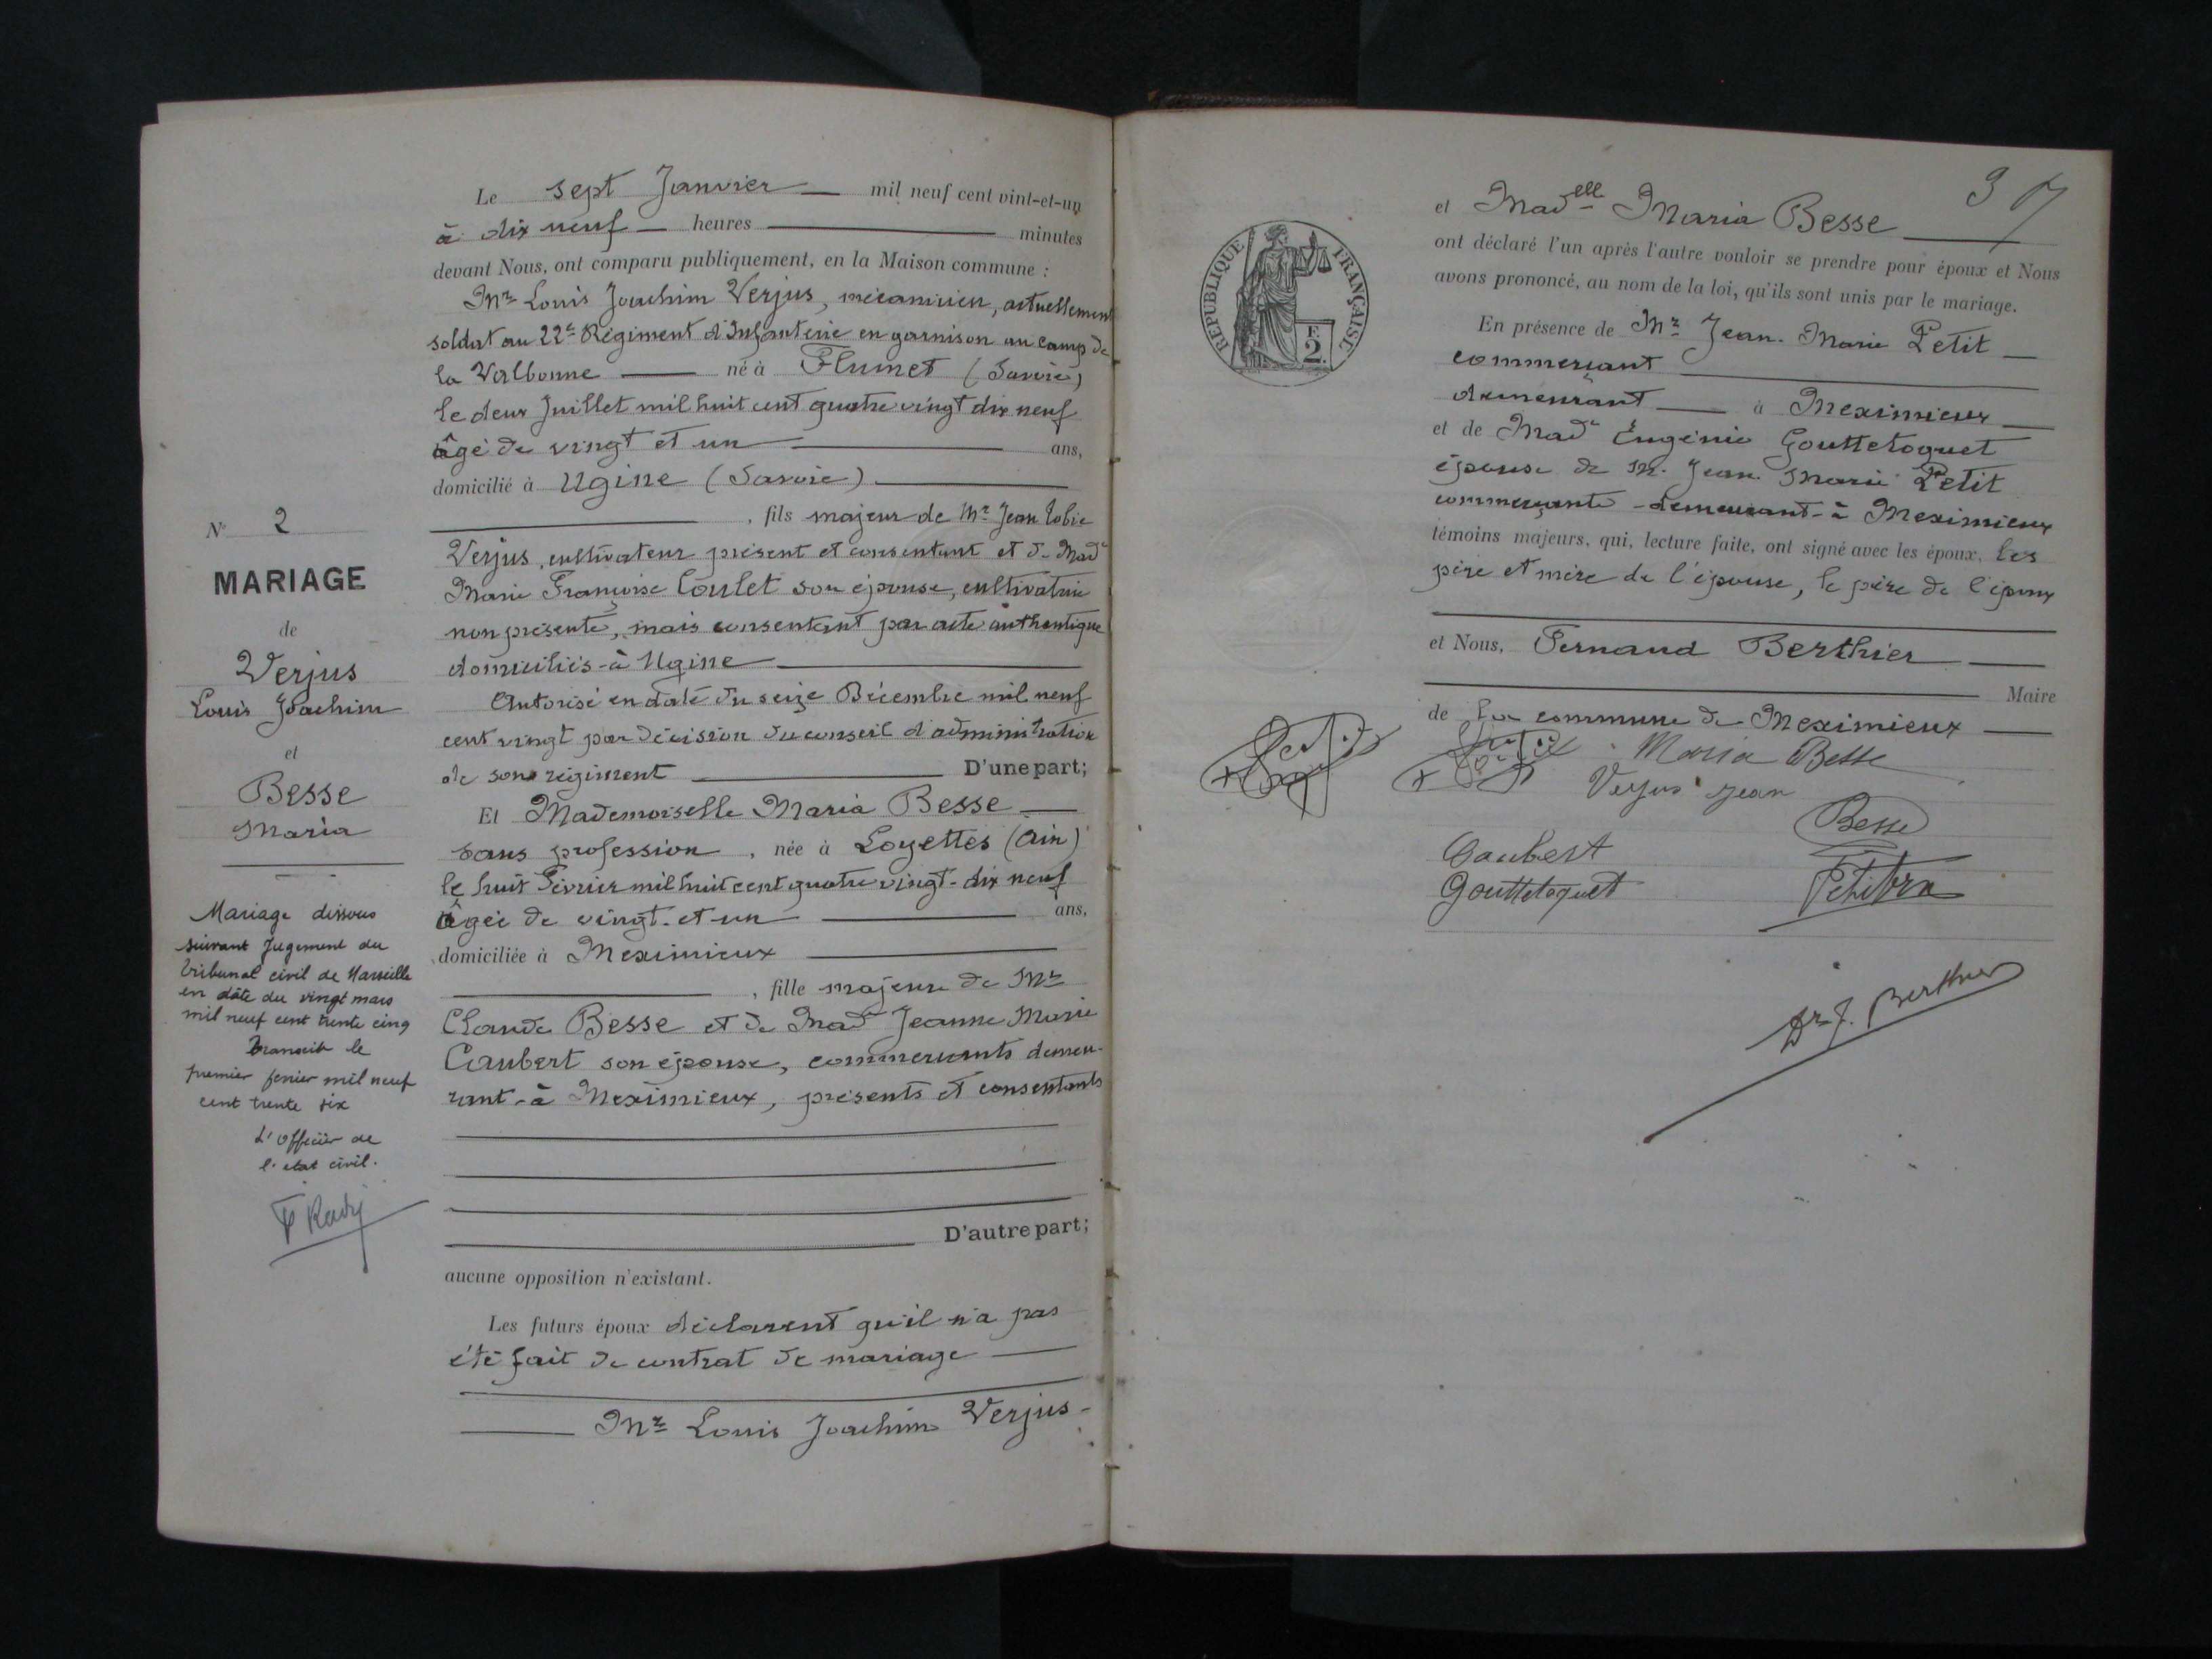 Le sept Janvier mil neuf cent vint-et-un
à dix neuf heures minutes
devant Nous, ont comparu publiquement, en la Maison commune :
Mr Louis Joachim Verjus, mécanicien, actuellement
soldat au 22e Régiment d'Infanterie en garnison au camp de
la Valbonne né à Flumet (Savoie)
le deux Juillet mil huit cent quatre vingt dix neuf
âgé de vingt et un ans,
domicilié à Ugine (Savoie)
, fils majeur de Mr Jean Tobie
Verjus, cultivateur présent et consentant et de Made
Marie Françoise Coulet son épouse, cultivatrice
non présente, mais consentant par acte authentique
domiciliés à Ugine
Autorisé en date du seize Décembre mil neuf
cent vingt par décision du conseil d'administration
de son régiment D'une part;
Et Mademoiselle Maria Besse
sans profession, née à Loyettes (Ain)
le huit Février mil huit cent quatre vingt-dix neuf
âgée de vingt-et-un ans,
domiciliée à Meximieux
, fille majeure de Mr
Claude Besse et de Made Jeanne Marie
Caubert son épouse, commerçants demeu-
rant-à Meximieux, présents et consentants
D'autre part;
aucune opposition n'existant.
Les futurs époux déclarent qu'il n'a pas
été fait de contrat de mariage
Mr Louis Joachim Verjus-
No 2
MARIAGE
de
Verjus
Louis Joachim
et
Besse
Maria
Mariage dissous
suivant Jugement du
tribunal civil de Marseille
en dâte du vingt mars
mil neuf cent trente cinq
Transcrit le
premier fevrier mil neuf
cent trente six
L'officier de
l'etat civil.
37
REPUBLIQUE FRANÇAISE
F.
2.
et Madelle Maria Besse
ont déclaré l'un après l'autre vouloir se prendre pour époux et Nous
avons prononcé, au nom de la loi, qu'ils sont unis par le mariage.
En présence de Mr Jean-Marie Petit
commerçant
demeurant à Meximieux
et de Made Eugénie Gouttetoquet
épouse de M. Jean Marie Petit
commerçante-demeurant-à Meximieux
témoins majeurs, qui, lecture faite, ont signé avec les époux, les
père et mère de l'épouse, le père de l'époux
et Nous, Fernand Berthier
Maire
de la commune de Meximieux
Maria Besse
Verjus Jean
Besse
Caubert
Gouttetoquet
Dr F. Berthier